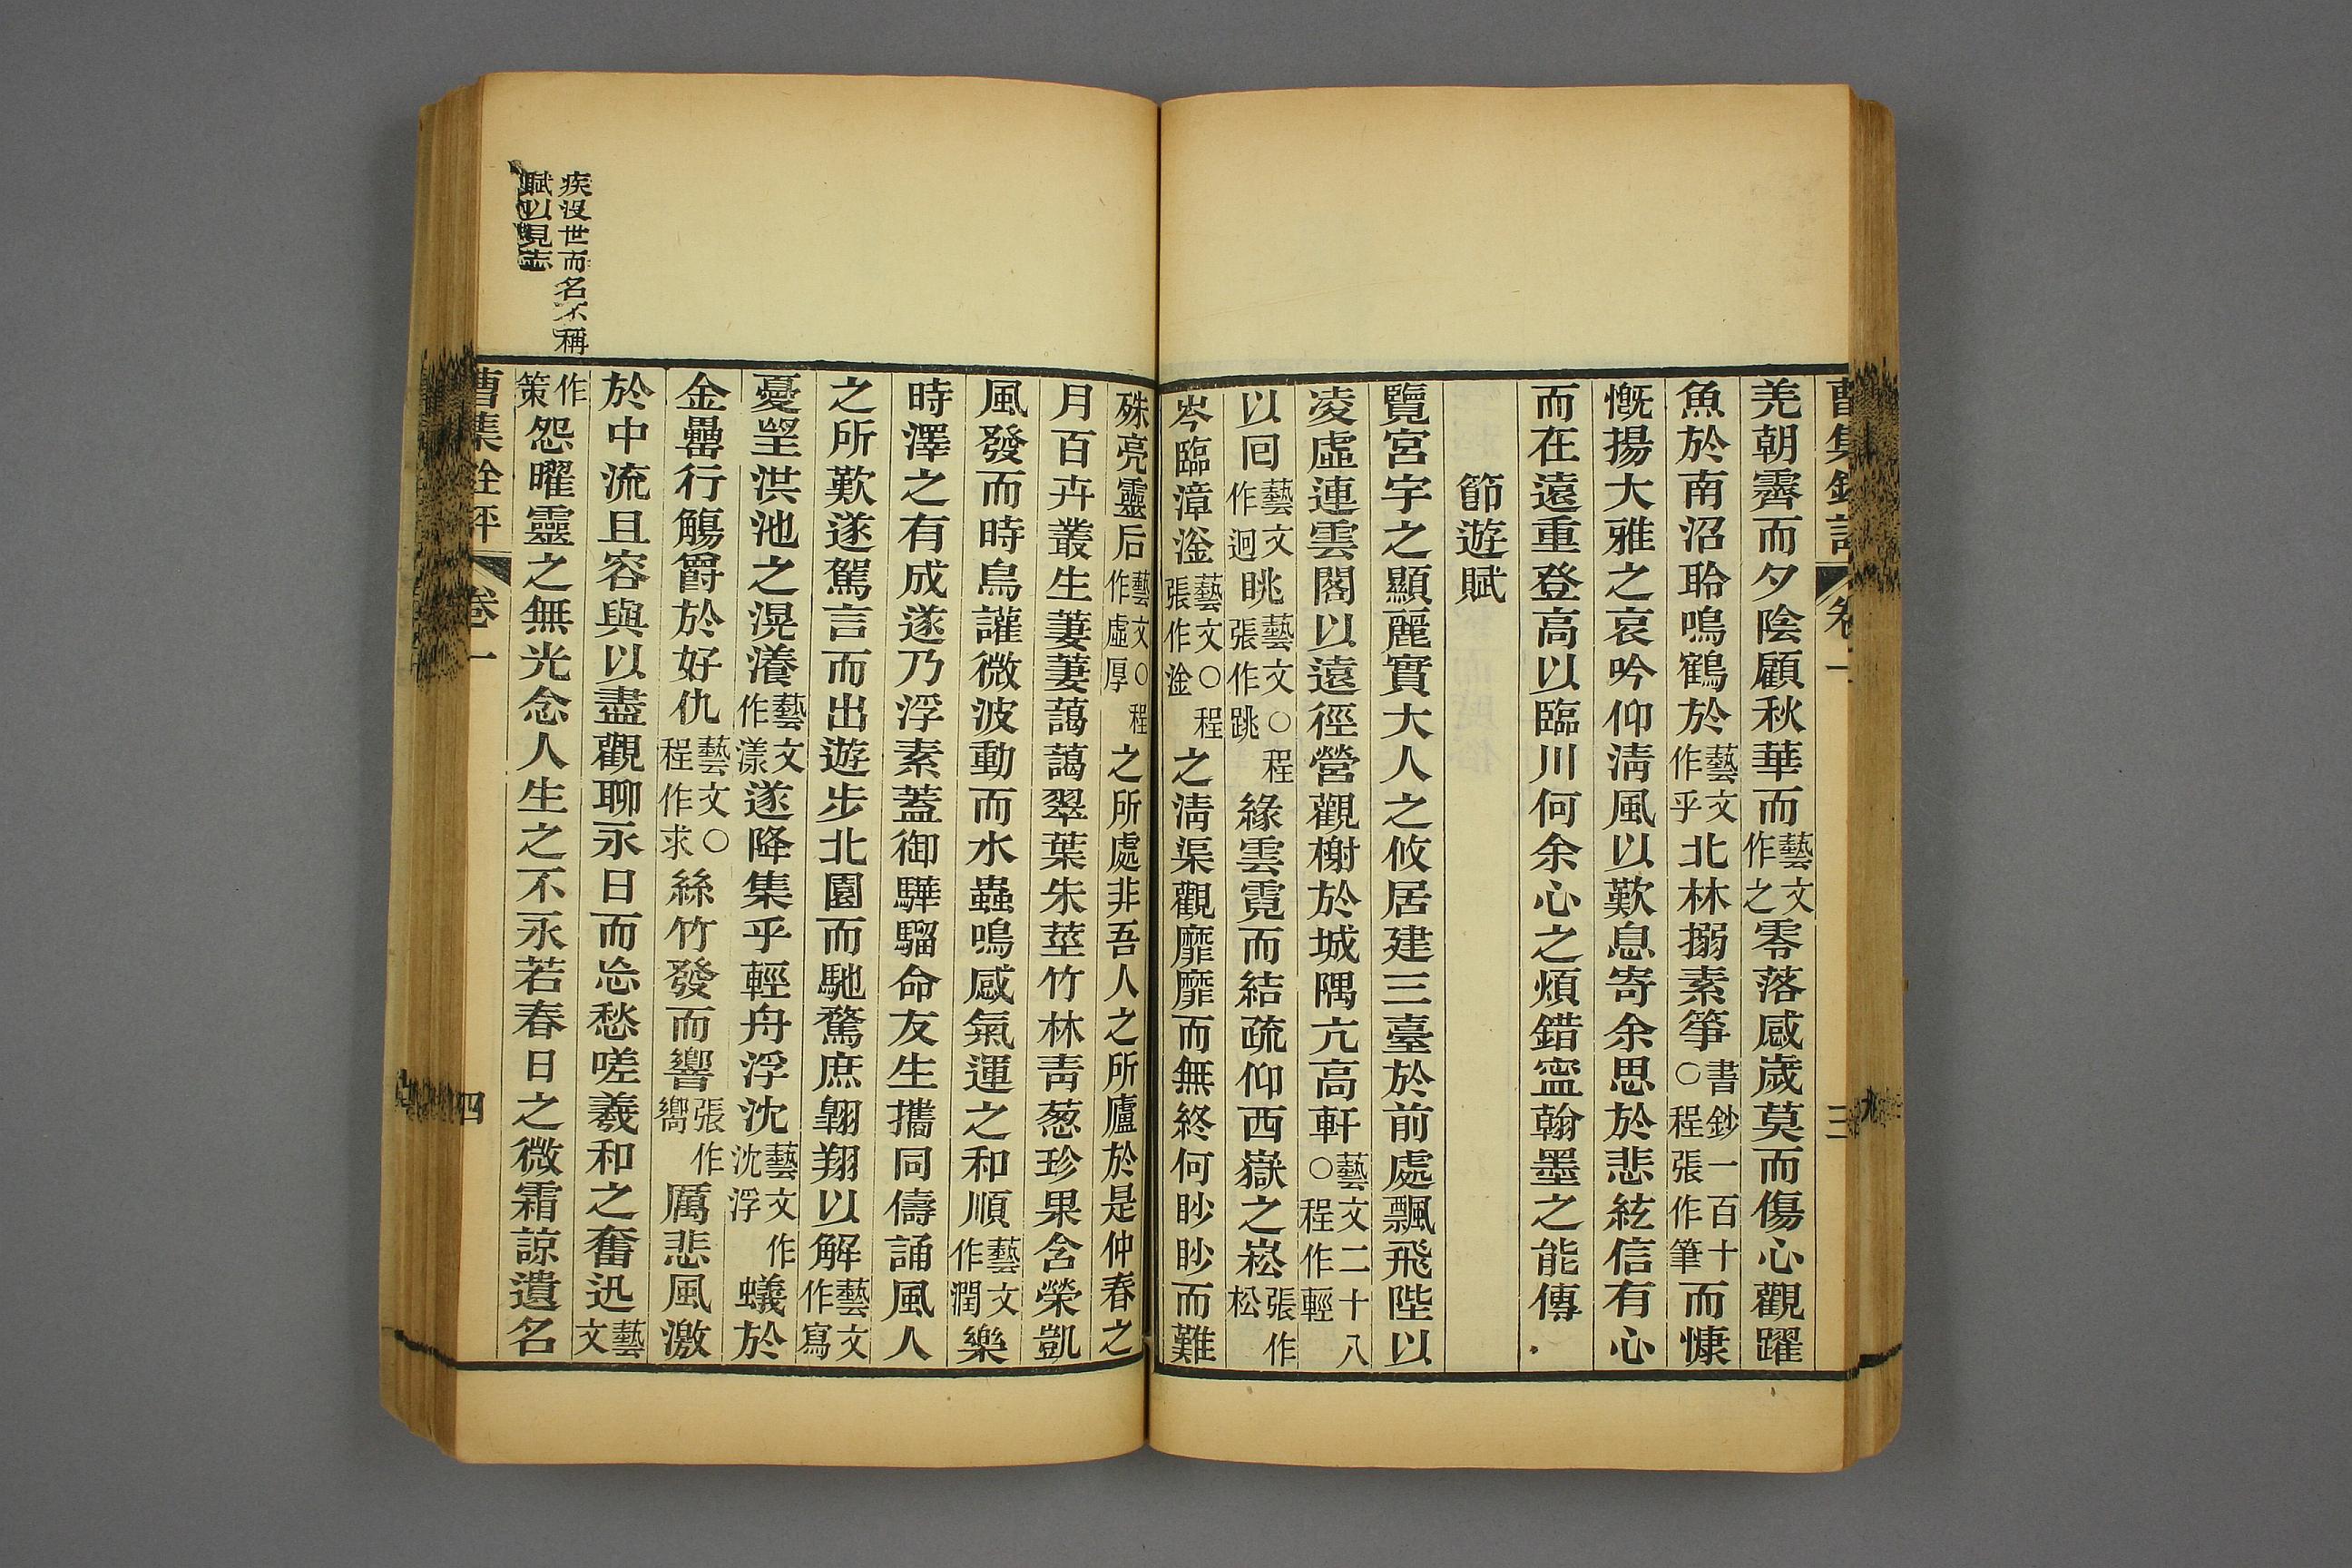 曹集銓評 卷一 三
羌朝霽而夕陰顧秋華而藝文作之零落感歲莫而傷心觀躍
魚於南沼聆鳴鶴於藝文作乎北林搦素筝書鈔一百十〇程張作筆而慷
慨揚大雅之哀吟仰清風以歎息寄余思於悲絃信有心
而在遠重登高以臨川何余心之煩錯寍翰墨之能傳
節遊賦
覽宮宇之顯麗實大人之攸居建三臺於前處飄飛陛以
凌虛連雲閣以遠徑營觀榭於城隅亢高軒藝文二十八〇程作輕
以回藝文作迥眺藝文〇程張作跳緣雲霓而結疏仰西嶽之崧張作松
岑臨漳滏藝文〇程張作淦之清渠觀靡靡而無終何眇眇而難
殊亮靈后藝文〇程作虛厚之所處非吾人之所廬於是仲春之
月百卉叢生萋萋藹藹翠葉朱莖竹林青葱珍果含榮凱
風發而時鳥讙微波動而水蟲鳴感氣運之和順藝文作潤樂
時澤之有成遂乃浮素蓋御驊騮命友生攜同儔誦風人
之所歎遂駕言而出遊步北園而馳騖庶翱翔以解藝文作寫
憂望洪池之滉瀁藝文作漾遂降集乎輕舟浮沈藝文作沈浮蟻於
金罍行觴爵於好仇藝文〇程作求絲竹發而響張作嚮厲悲風激
於中流且容與以盡觀聊永日而忘愁嗟羲和之奮迅藝文
作策怨曜靈之無光念人生之不永若春日之微霜諒遺名
疾沒世而名不稱
賦以見志
曹集銓評 卷一 四